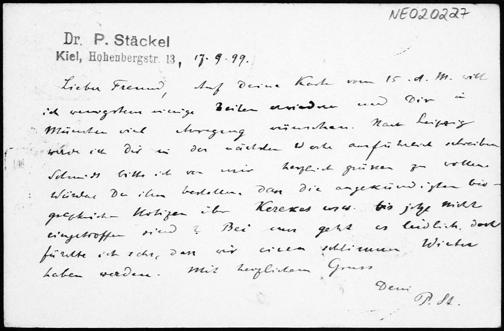 NE020227
Dr. P. Stäckel
Kiel, Hohenbergstr. 13, 17.9.99.
Lieber Freund, Auf Deine Karte vom 15. d. M. will
ich wenigstens einige Zeilen erwidern und Dir in
München viel wünschen. Nach Leipzig
werde ich Dir in der nächsten Woche ausführlich schreiben
Schmidt bitte ich von mir herzlich grüssen zu wollen
Würdest Du ihm bestellen, dass die angekündigten bio-
graphischen Notizen über Kerekes bis jetzt nicht
eingetroffen sind? Bei uns geht es leidlich, doch
fürchte ich sehr, dass wir einen schlimmen Winter
haben werden. Mit herzlichem Gruss
Dein
P. St.